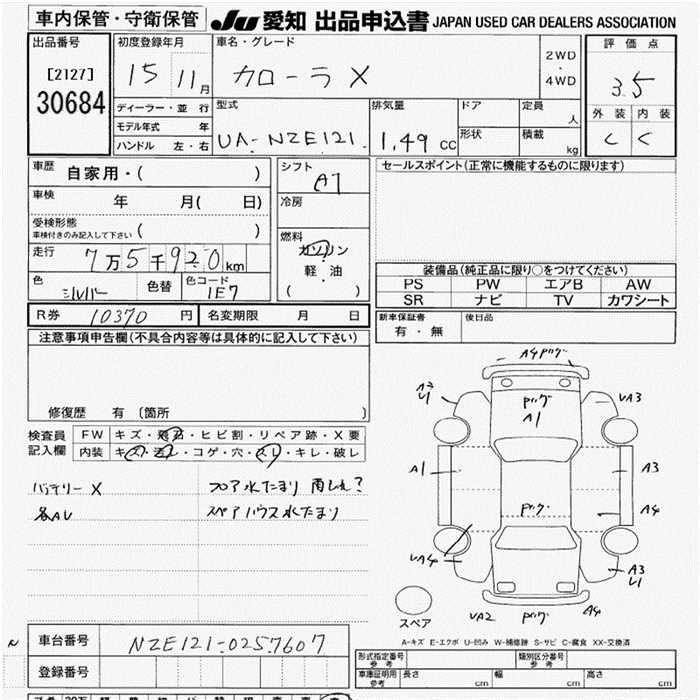 車内保管・守衛保管
JU 愛知 出品申込書 JAPAN USED CAR DEALERS ASSOCIATION
出品番号
[2127]
30684
初度登録年月
15 11月
車名・グレード
カローラ X
2WD
・
4WD
評価点
3.5
外装 内装
C C
ディーラー・並行
モデル年式 年
ハンドル 左・右
型式
UA-NZE121
排気量
1,49 CC
ドア
形状
定員
人
積載
kg
車歴 自家用・( )
車検 年 月( 日)
受検形態
車検付きのみ記入して下さい ( )
走行 7万5千920km
色 シルバー 色替 色コード 1E7
シフト
AT
冷房
燃料
ガソリン
・
軽・油
( )
セールスポイント(正常に機能するものに限ります)
装備品(純正品に限り○をつけてください)
PS PW エアB AW
SR ナビ TV カワシート
R券 10370 円 名変期限 月 日
新車保証書
有・無
後日品
注意事項申告欄(不具合内容等は具体的に記入して下さい)
修復歴 有 (箇所 )
検査員
記入欄
FW キズ・飛石・ヒビ割・リペア跡・X要
内装 キズ・汚レ・コゲ・穴・スレ・キレ・破レ
バッテリー X
各AU
フロア水たまり 雨じみ?
スペアハウス水たまり
A4 P.ング
A2
U1
P.ング
A1
UA3
A1
A3
P.ング
A4
UA4
A3
U1
スペア
UA2
P.ング
A4
A-キズ E-エクボ U-凹み W-補修跡 S-サビ C-腐食 XX-交換済
車台番号 NZE121-0257607
登録番号
形式指定番号
参考
類別区分番号
参考
車庫証明用
参考
長さ cm 幅 cm 高さ cm